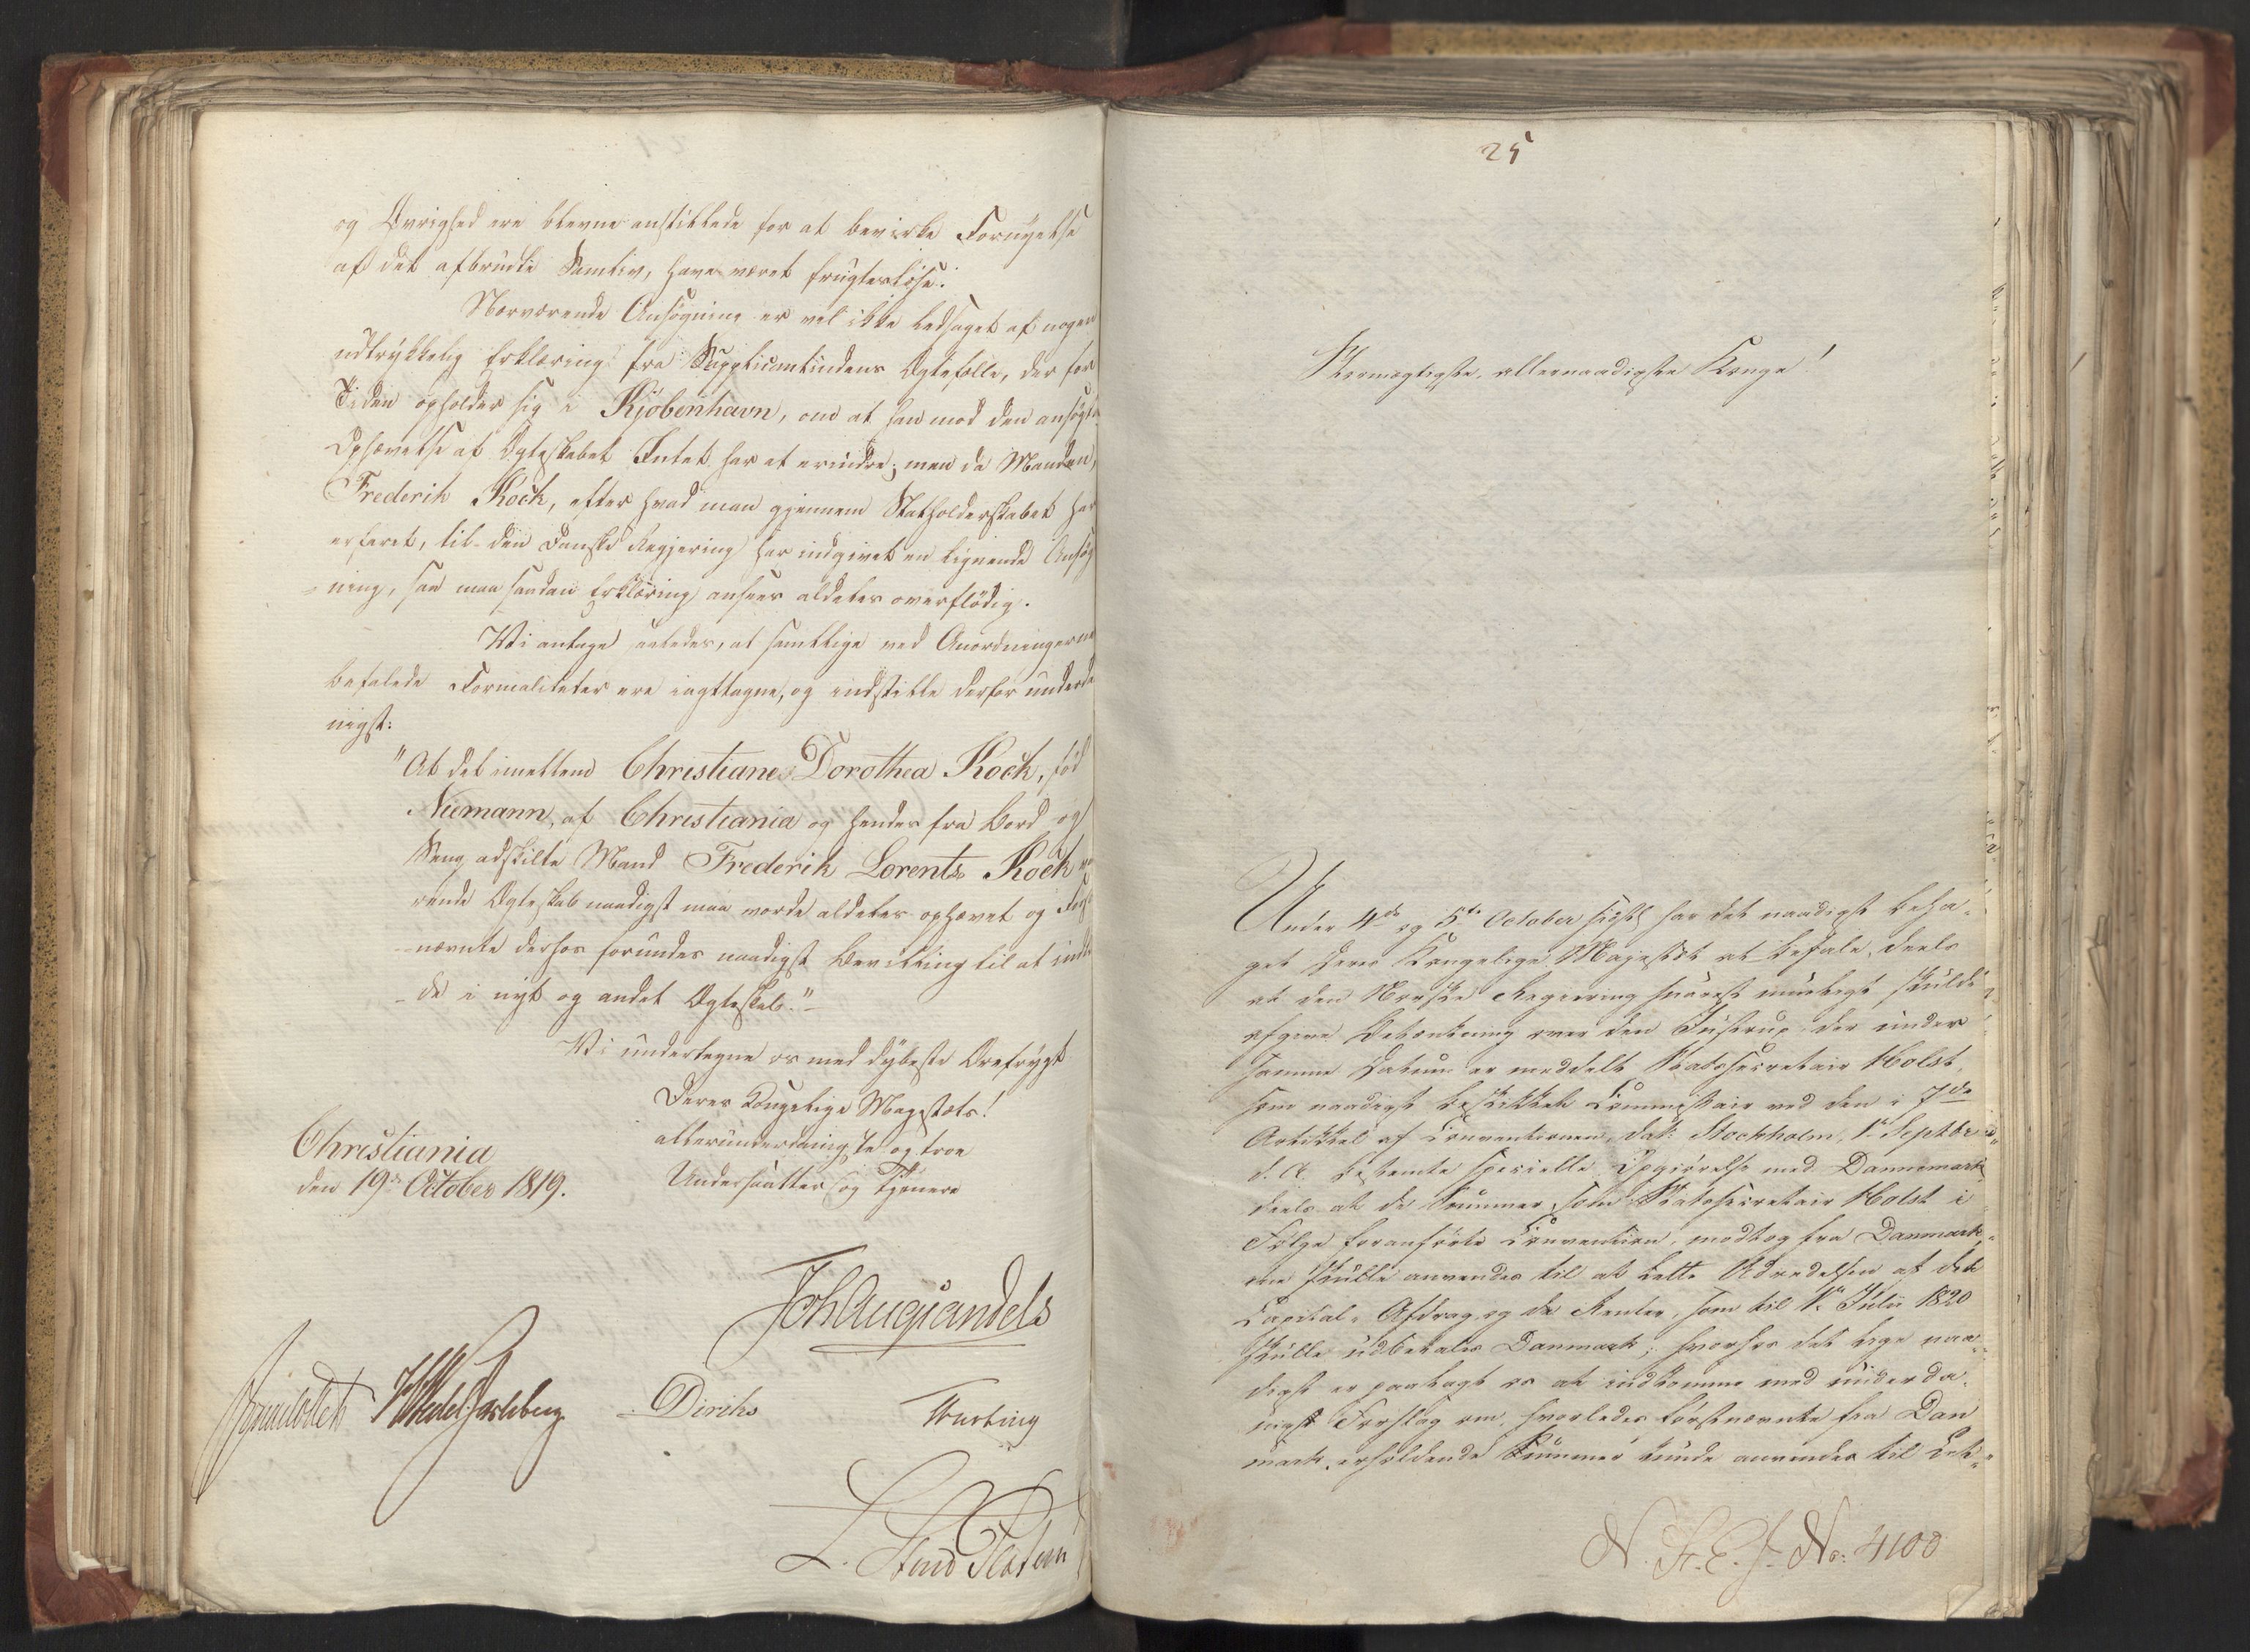 og Øvrighed ere blevne anstillede for at bevirke Fornyelse
af det afbrudte Samliv, have været frugtesløse.
Nærværende Ansøgning er vel ikke ledsaget af nogen
udtrykkelig Erklæring fra Supplicantindens Ægtefælle, der for
Tiden opholder sig i Kjøbenhavn, om at han mod den ansøgte
Ophævelse af Ægteskabet Intet har at erindre; men da Manden,
Frederik Kock, efter hvad man gjennem Statholderskabet har
erfaret, til den danske Regjering har indgivet en lignende Ansøg
=ning, saa maa saadan Erklæring ansees aldeles overflødig.
Vi antage saaledes, at samtlige ved Anordningerne
befalede Formaliteter ere iagttagne, og indstille derfor underda
nigst:
"At det imellem Christiane Dorothea Kock, fød
Niemann, af Christiania og hendes fra Bord og
Seng adskilte Mand Frederik Lorents Kock væ
rende Ægteskab naadigst maa vorde aldeles ophævet og Først
=nævnte derhos forundes naadigst Bevilling til at indtræ
=de i nyt og andet Ægteskab."
Vi undertegne os med dybeste Ærefrygt
Deres Kongelige Majestæts!
allerunderdanigste og troe
Undersaatter og Tjenere
Christiania
den 19de October 1819.
Joh Aug Sandels
HWedel Jarlsberg
Diriks
25
Stormægtigste, allernaadigste Konge!
Under 4de og 5te October sidstl har det naadigst beha-
get Deres Kongelige Majestæt at befale, deels
at den Norske Regiering snarest mueligt skulde
afgive Betænkning over den Instrux, der under
samme Datum er meddelt Statssecretair Holst,
som naadigst beskikket Commissair ved den i 7de
Artikkel af Conventionen, dat: Stockholm, 1e Septbr
d. A. bestemte specielle Opgiørelse med Dannemark,
deels at de Summer, som Statssecretair Holst i
Følge foranførte Convention, modtog fra Danmark,
skulle anvendes til at lette Udredelsen af det
Capital-Afdrag og de Renter, som til 1e Julii 1820
skulle udbetales Danmark; hvorhos det lige naa-
digst er paalagt os at indkomme med underda-
nigst Forslag om, hvorledes førstnævnte fra Dan
mark erholdende Summer kunde anvendes til Let-
N. F. E. J. No: 4100